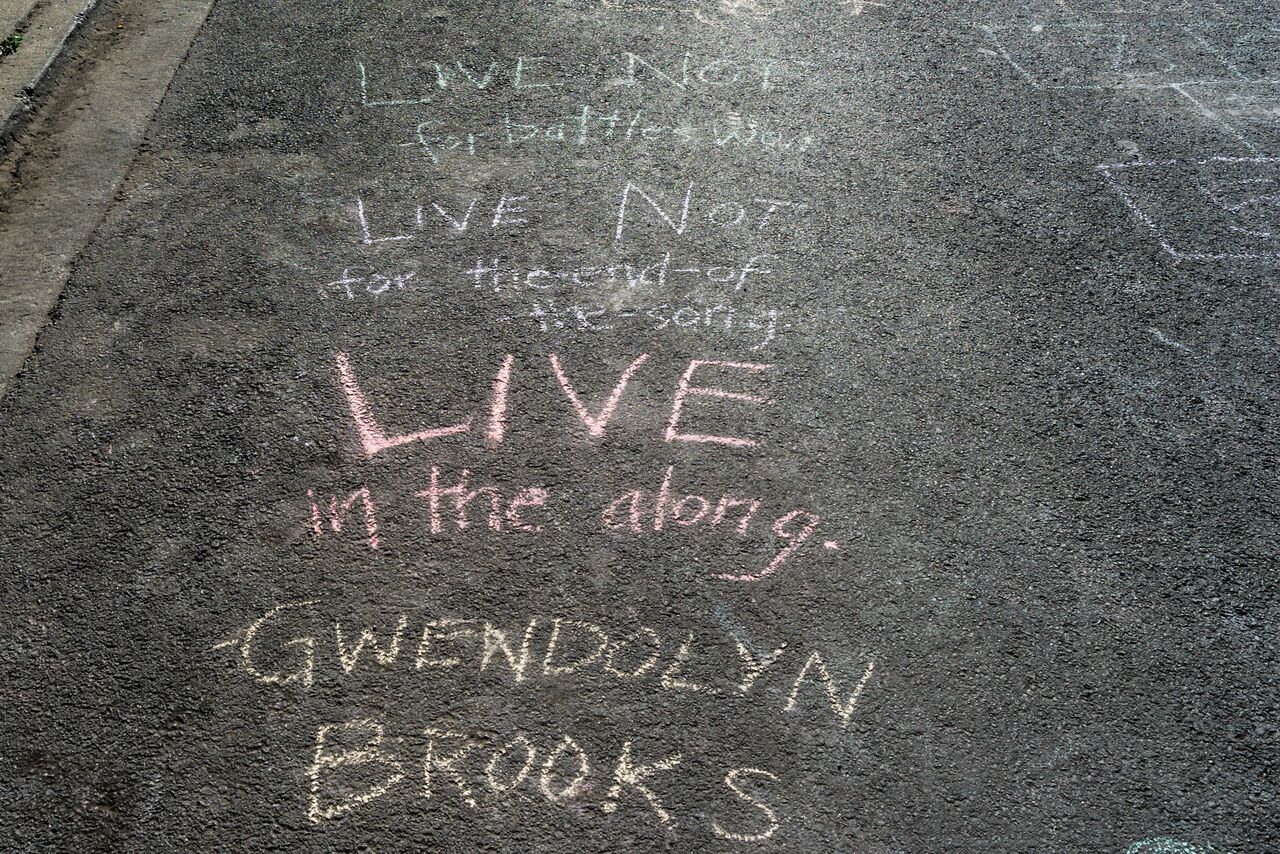 LIVE NOT
for battles won
LIVE NOT
for the-end-of
-the-song
LIVE
in the along.
-GWENDOLYN
BROOKS